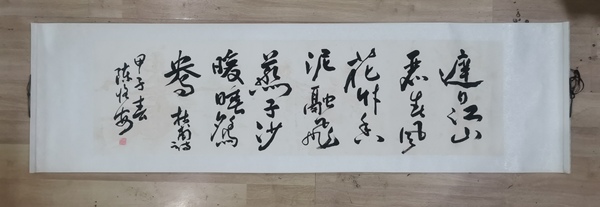 遲日江山
麗春風
花艸香
泥融飛
燕子沙
暖睡鴛
鴦 杜甫詩
甲子春
陈